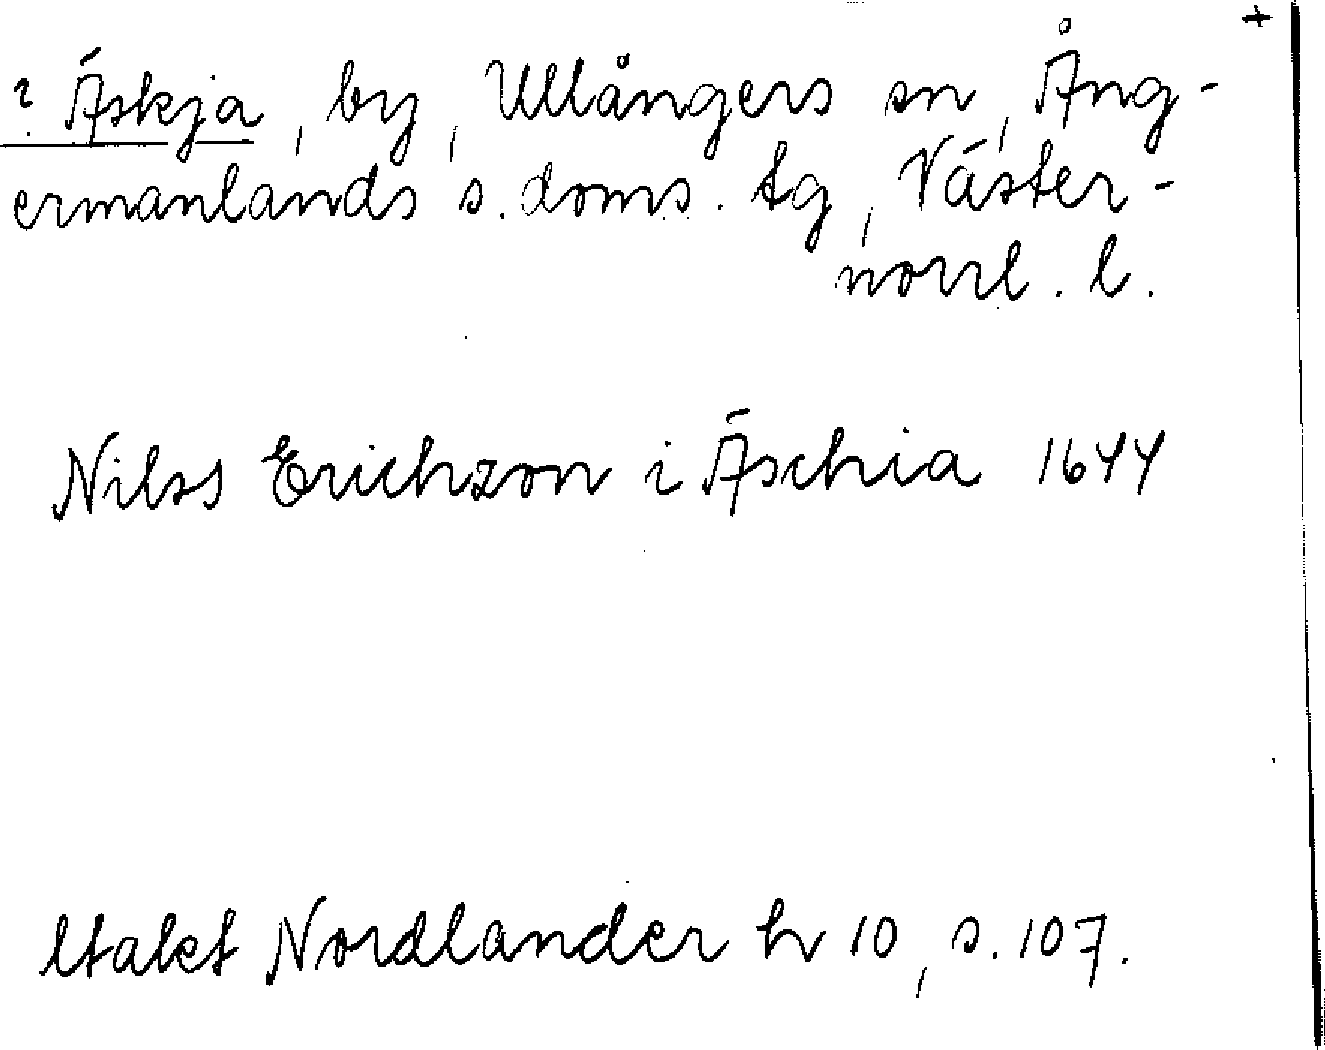 +
? Äskja, by, Ullångers sn, Ång-
ermanlands s. doms. tg, Väster-
norrl. l.
Nilss Erichzon i Äschia 1644
Nordlander h 10, s. 107.